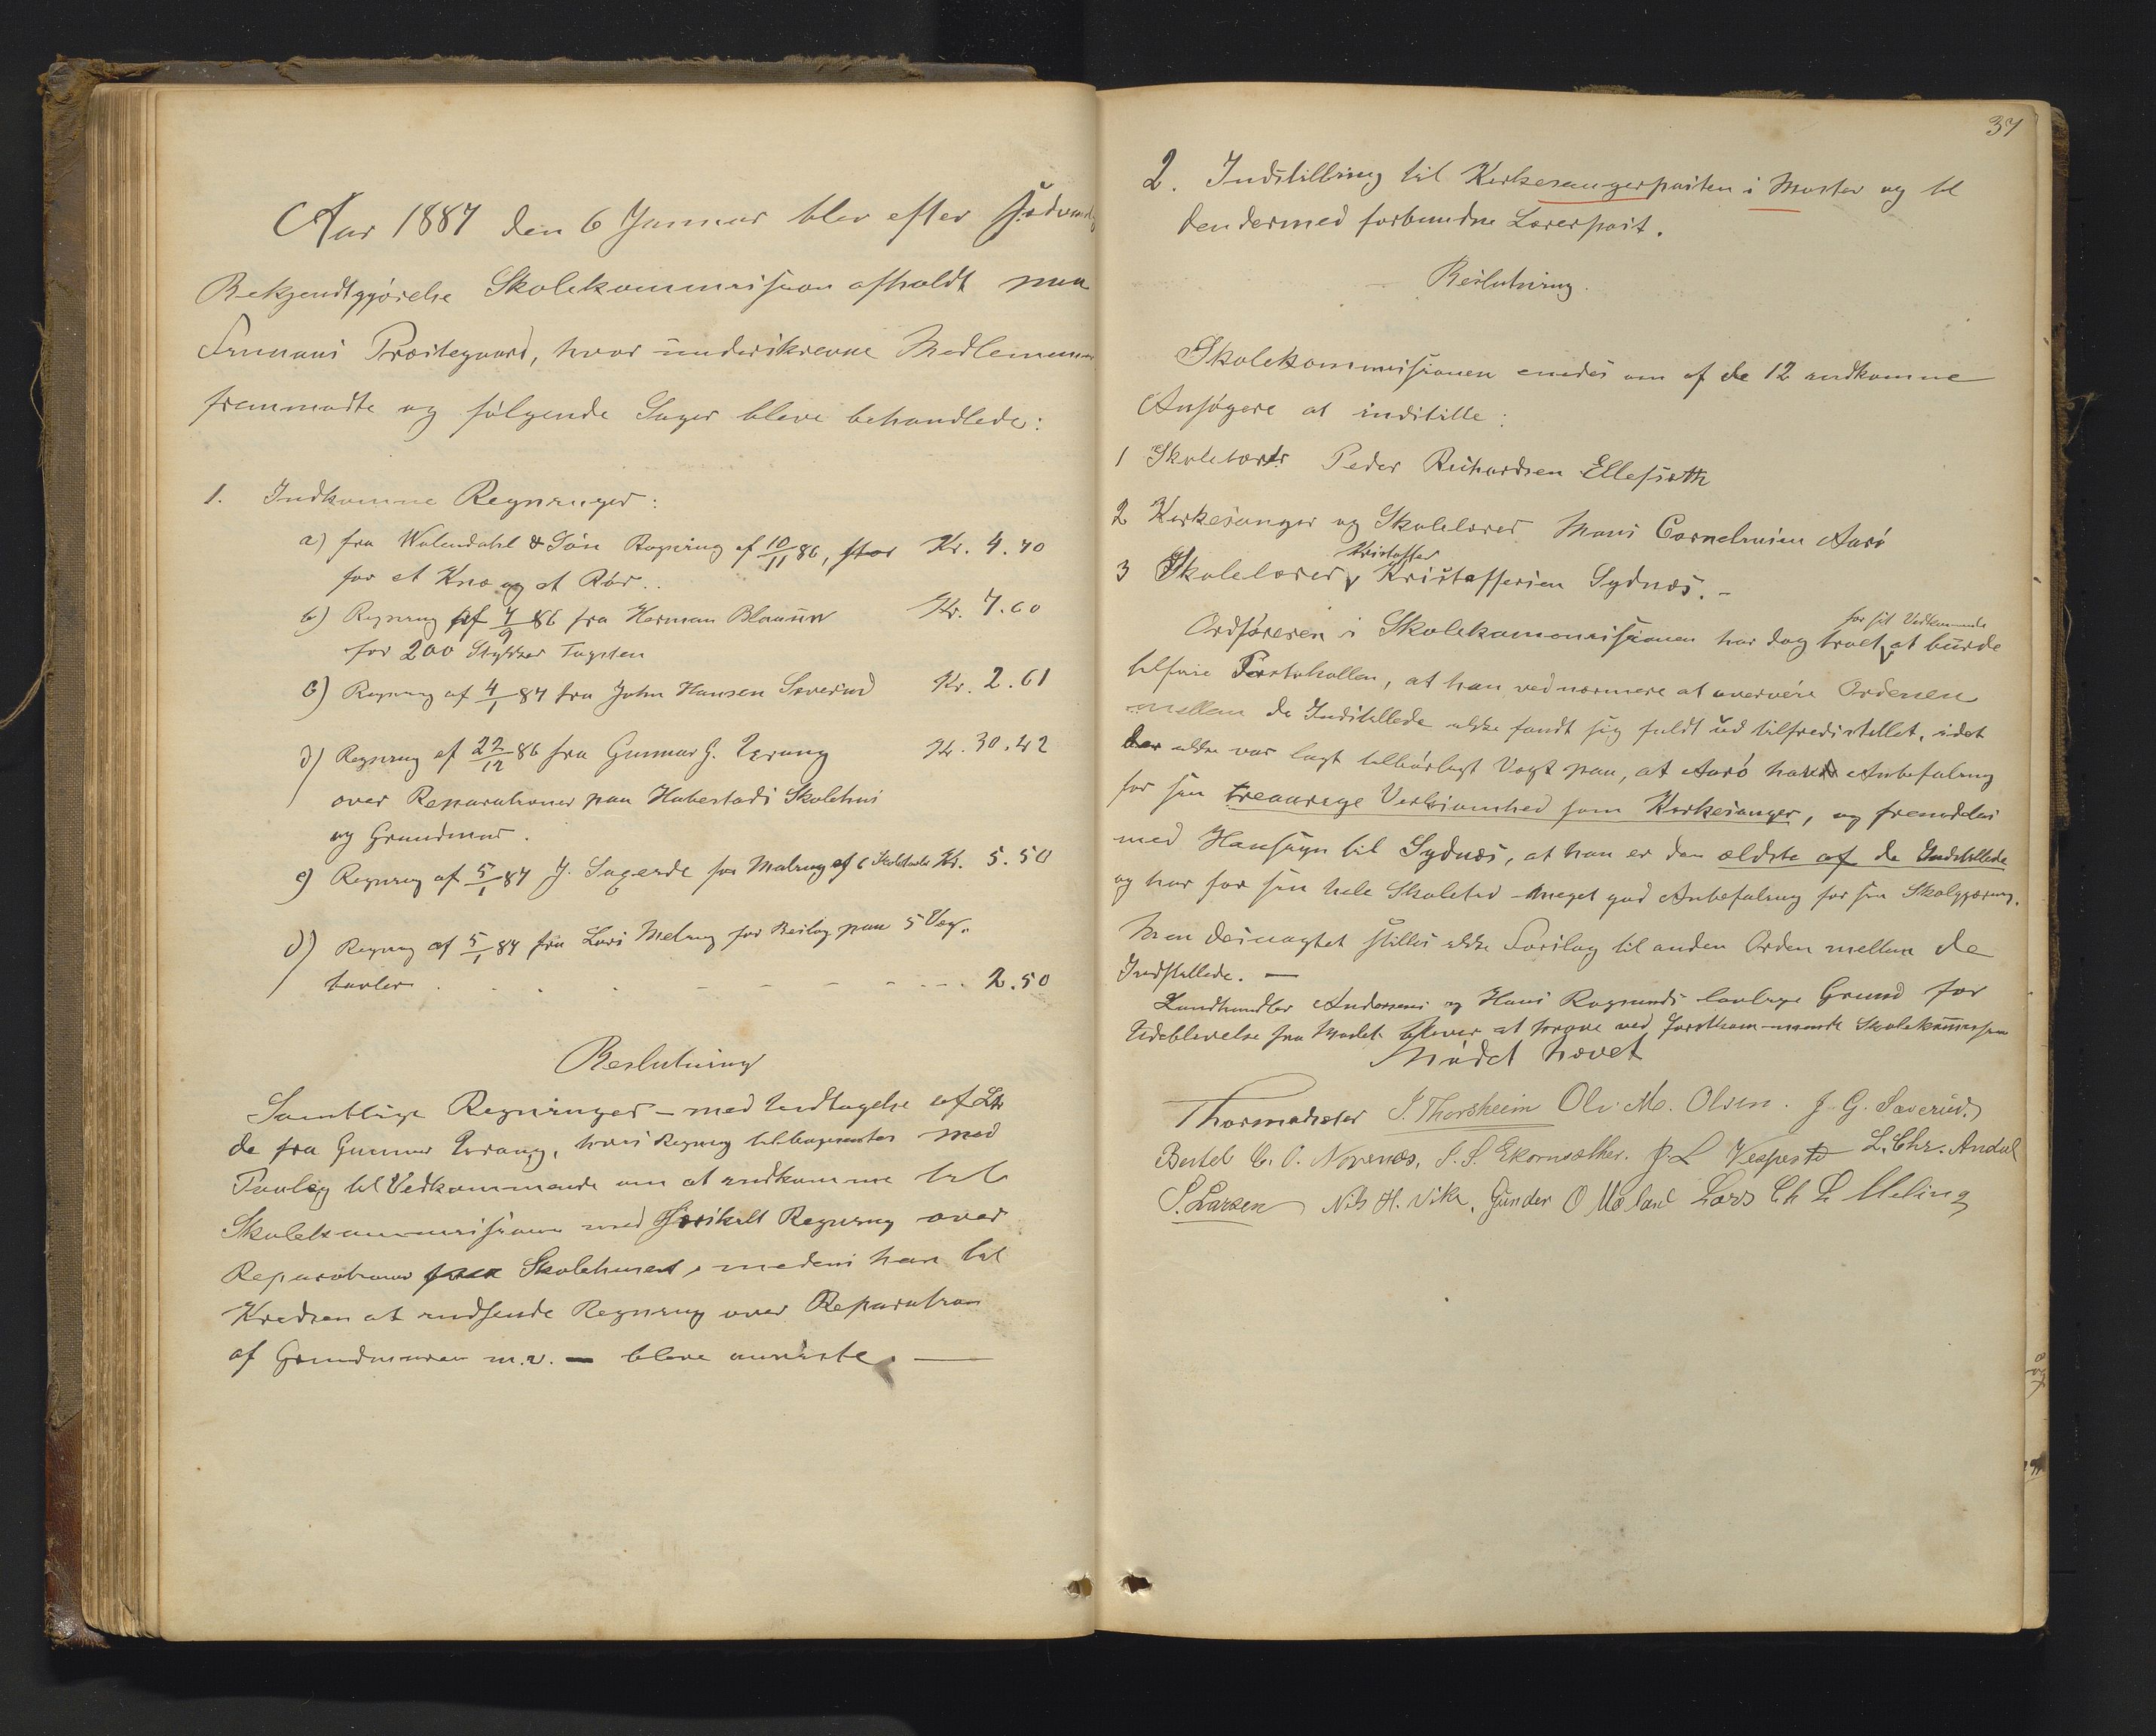 Aar 1887 den 6 Januar blev efter sædvanlig
Bekjendtgjörelse Skolekommission afholdt paa
Finnaas Præstegaard, hvor underskrevne Medlemmer
fremmødte og følgende Sager bleve behandlede:
1. Indkomne Regninger:
a) fra Walendahl & Sön Regning af 10/11 86, stor Kr. 4.70
for et Knæ og et Rör.
b) Regning af 7/9 86 fra Herman Blaauw Kr. 7.60
for 200 Stykker Tagsten
c) Regning af 4/1 87 fra John Hansen Sæverud Kr. 2.61
d) Regning af 22/12 86 fra Gunnar G. Kr. 30.42
over Reparationer paa Habestads Skolehus
og Grundmur.
e) Regning af 5/1 87 J. for Maling af 6 Skoletavler Kr. 5.50
Regning af 5/1 87 fra Lars Meling for Beslag paa 5 Væg-
tavler . . . . 2.50
Beslutning
Samtlige Regninger – med Undtagelse af Litr
de fra Gunnar hvis Regning tilbagesendes med
Paalæg til Vedkommende om at indkomme til
Skolekommissionen med særskilt Regning over
Reparationer paa Skolehuset, medens han til
Kredsen at indsende Regning over Reparation
af Grundmuren m.v. – bleve anviste. —
37
2. Indstilling til Kirkesangerposten i Moster og til
den dermed forbundne Lærerpost.
Beslutning.
Skolekommissionen enedes om af de 12 indkomne
Ansøgere at indstille:
1 Skolelærer Peder Richardsen Ellefsæth
2 Kirkesanger og Skolelærer Mons Corneliusen Aarö
Kristoffer
3 Skolelærer Kristoffersen Sydnæs. –
for sit Vedkommende
Ordføreren i Skolekommissionen har dog troet at burde
tilføie Protokollen, at han ved nærmere at overveie Ordenen
mellem de Indstillede ikke fandt sig fuldt ud tilfredsstillet, idet
der ikke var lagt tilbörligt Vægt paa, at Aarö havde Anbefaling
for sin treaarige Virksomhed som Kirkesanger, og fremdeles
med Hensyn til Sydnæs, at han er den ældste af de Indstillede
og har for sin hele Skoletid meget god Anbefaling for sin Skolegjerning.
Men desuagtet stilles ikke Forslag til anden Orden mellem de
Indstillede. —
Landhandler Andersens og Hans Rogsunds lovlige Grund for
Udeblivelse fra Mødet bliver at pröve ved førstkommende Skolekommission
Mödet hævet
Thormodsæter J. Thorsheim Ole M. Olsen. J. G. Sæverud.
Bertel C. O. Norenæs. S. S. Ekornsæther. P. L Vespestd L. Chr. Andal
S. Larsen Nils H. Vika. Gunder O Mæland Lars Ch L Meling